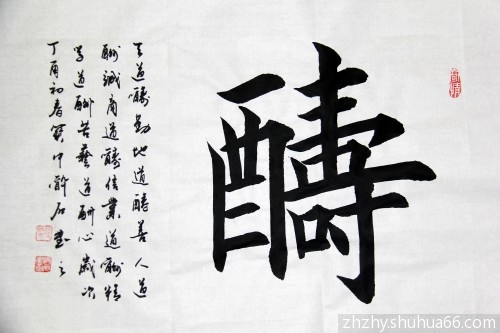 醻
天道醻勤地道醻善人道
酬誠商道醻信業道酬精
学道酬苦藝道酬心歲次
丁酉初春中石書之
zhzhy.shuhua66.com